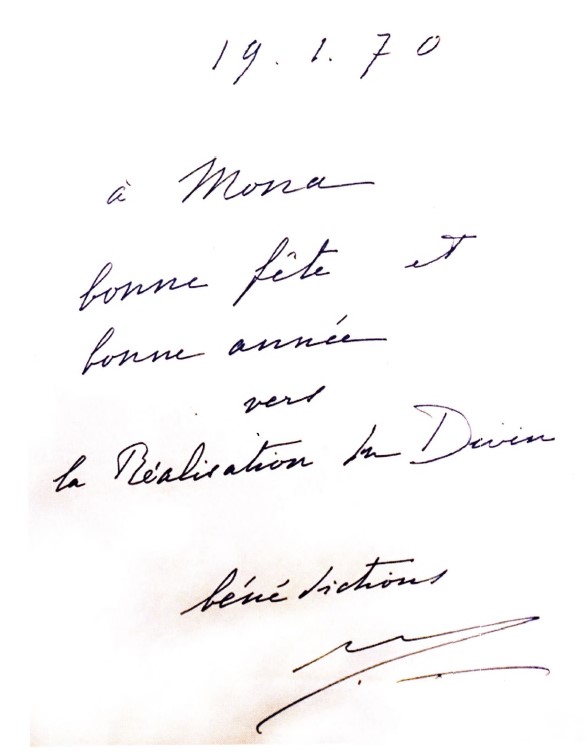 19.1.70
à Mona
bonne fête et
bonne année
vers
la Réalisation du Divin
bénédictions